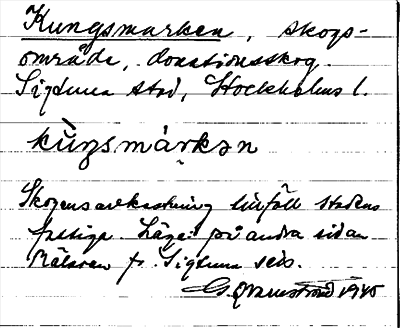 Kungsmarken, skogs-
område, donationsskog.
Sigtuna stad, Stockholms l.
kùŋsmárkən
Skogens avkastning tillföll stadens
fattiga. Läge: på andra sidan
Mälaren fr. Sigtuna sed.
G. Qvarnström 1945